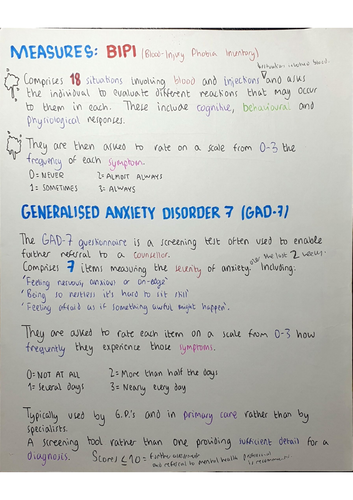 MEASURES: BIPI (Blood-Injury Phobia Inventory)
Comprises 18 situations involving blood and injections and asks
the individual to evaluate different reactions that may occur
to them in each. These include cognitive, behavioural and
physiological responses.
They are then asked to rate on a scale from 0-3 the
frequency of each symptom.
0= NEVER 2= ALMOST ALWAYS
1= SOMETIMES 3= ALWAYS
GENERALISED ANXIETY DISORDER 7 (GAD-7)
The GAD-7 questionnaire is a screening test often used to enable
further referral to a counsellor.
over the last 2 weeks.
Comprises 7 items measuring the severity of anxiety. Including:
'Feeling nervous, anxious or on-edge'
'Being so restless it's hard to sit still'
'Feeling afraid as if something awful might happen'.
They are asked to rate each item on a scale from 0-3 how
frequently they experience those symptoms.
0= NOT AT ALL 2= More than half the days
1= Several days 3= Nearly every day
Typically used by G.P.'s and in primary care rather than by
specialists.
A screening tool rather than one providing sufficient detail for a
diagnosis. Scores ≤10 = further assessment
and referral to mental health professional
is recommended